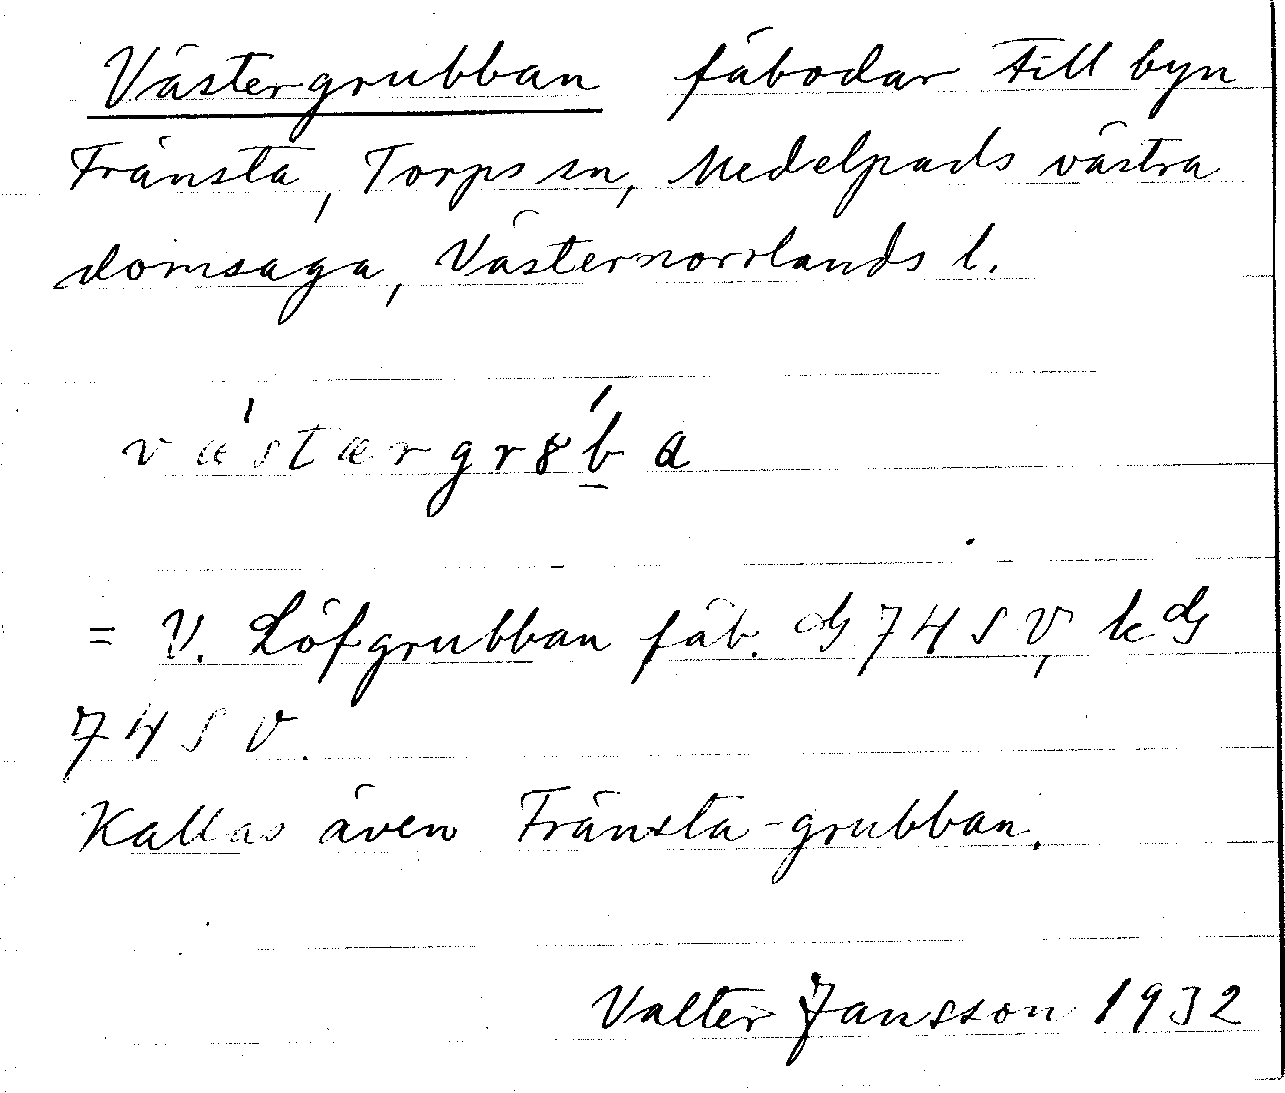 Västergrubban fäbodar till byn
Fränsta, Torps sn, Medelpads västra
domsaga, Västernorrlands l.
vǽstærgr8b̲́a
= V. Löfgrubban fäb. dG 74 SV, k dG
74 S V.
Kallas även Fränsta-grubban.
Valter Jansson 1932